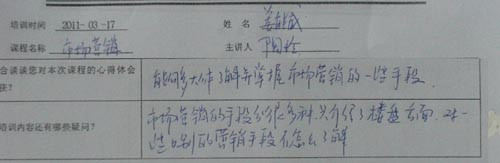 培训时间 2011-03-17 姓名 姜能成
课程名称 市场营销 主讲人
合谈谈您对本次课程的心得体会
获? 能够多大体了解并掌握市场营销的一些手段.
市场营销的手段分很多种.只介绍了楼盘方面.对一
培训内容还有哪些疑问? 些别的营销手段不怎么了解